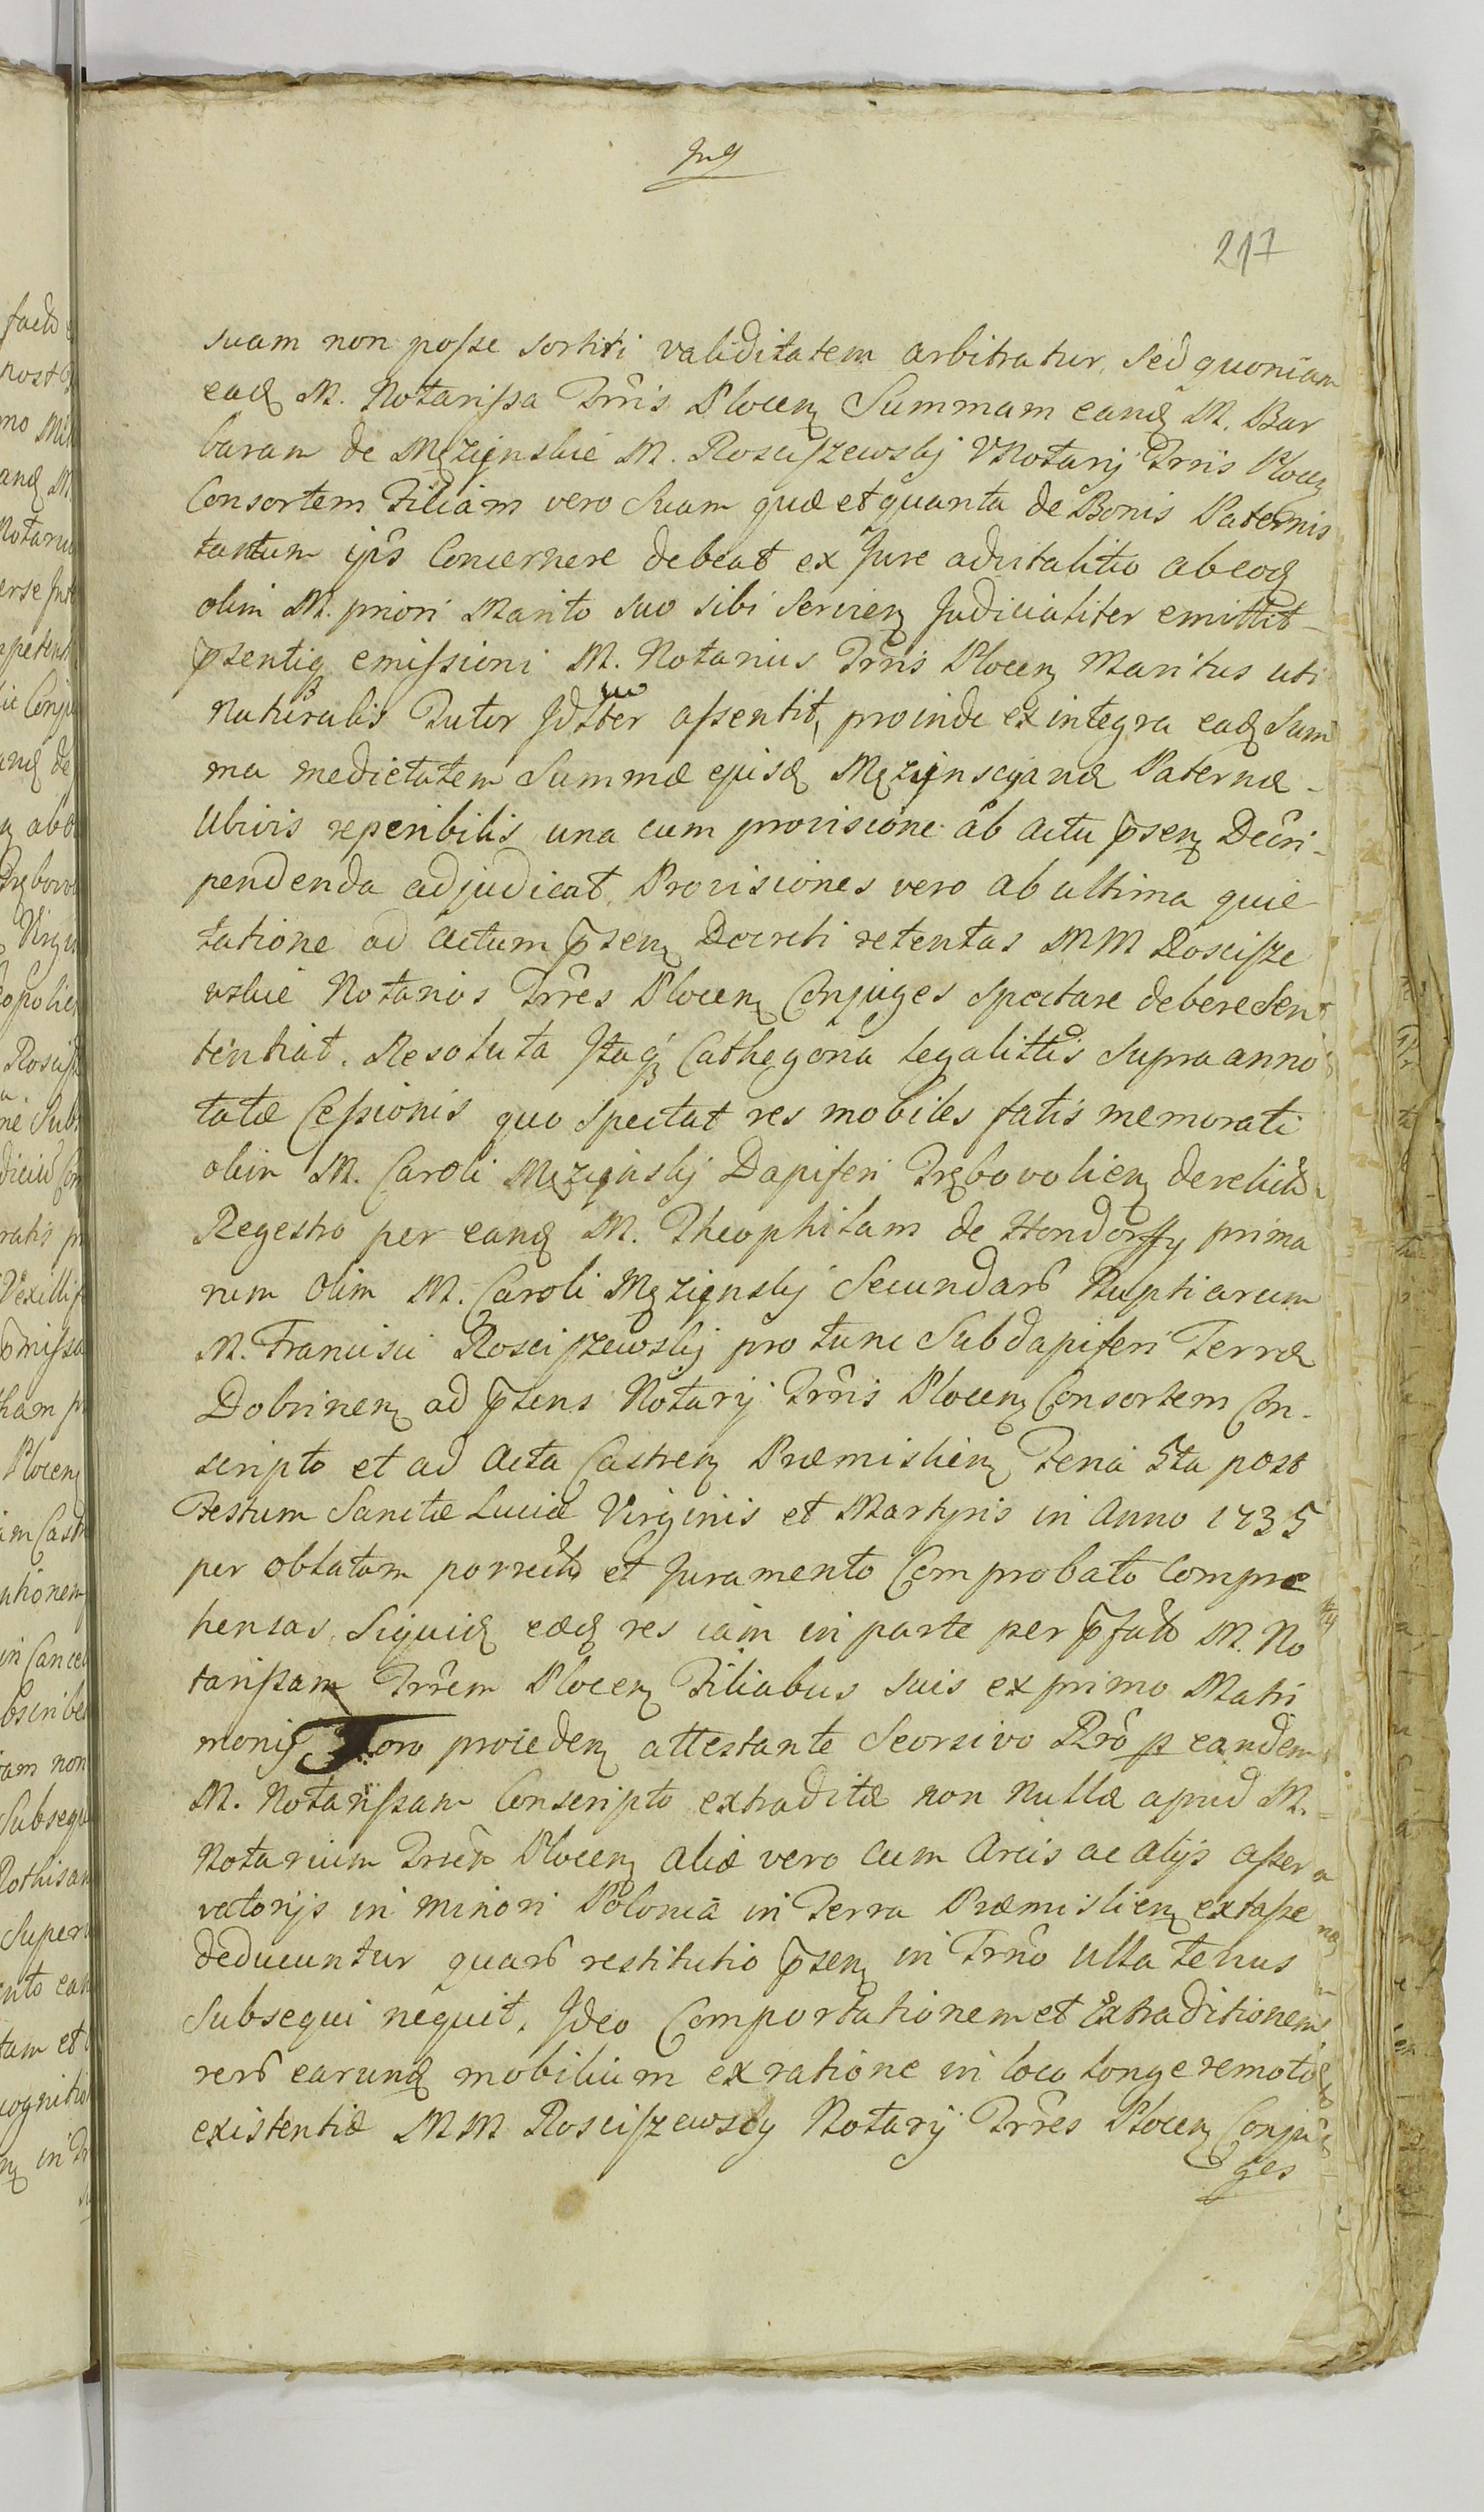 217
suam non posse sortiri validitatem arbitratur, Sed quoniam
ead M. Notarissa Trris Plocen Summam eand M. Bar
baram de Męzięnskie M. Rosciszewskj VNotarij Trris Plocen
Consortem Filiam vero Suam quæ et quanta de Bonis Paternis
tantum ips Concernere debeat ex Jure advitalitio ab eod
olim M. priori Marito suo sibi Servien Judicialiter emittit
psentiq emissioni M. Notarius Trris Plocen Maritus uti
naturalis Tutor assentit, proinde ex integra ead Sum
ma medietatem Summæ ejusd Męzięnscyanæ Paternæ
Ubivis reperibilis una cum provisione ab actu psen Decri
pendenda adjudicat, Provisiones vero ab ultima quie
tatione ad actum psen Decreti retentas MM Roscisze
wskie Notarios Trres Plocen Conjuges Spectare debere Sen
tentiat. Resoluta Itaq Cathegoria legalittis Supra anno
tatæ Cessionis quo Spectat res mobiles fatis memorati
olim M. Caroli Męzięnskj Dapiferi Trębovolien derelict
Regestro per eand M. Theophilam de Hondorffy prima
rum Olim M. Caroli Męzięnskj Secundar Nuptiarum
M. Francisci Rosciszewskj pro tunc Subdapiferi Terræ
Dobrinen ad psens Notarij Trris Plocen Consortem Con-
scripto et ad Acta Castren Præmislien Feria 5ta post
Festum Sanctæ Luciæ Virginis et Martyris in Anno 1735
per oblatam porrecto et Juramento Comprobato Compræ
hensas, Siquid eæd res iam in parte per pfat M. No
tarissam Trrem Plocen Filiabus suis ex primo Matri
monij Toro proceden attestante Seorsivo Rro p eandem
M. Notarissam Conscripto extraditæ non nullæ apud M.
Notarium Trrem Plocen aliæ vero cum Arcis ac alijs asser
vatorijs in minori Polonia in Terra Præmislien extasse
deducuntur quar restitutio psen in Trno ullatenus
Subsequi nequit, Ideo Comportationem et Extraditionem
rer earund mobilium ex ratione in loco longe remoto
existentiæ MM Roscijzewscy Notarij Trres Plocen Conju
ges